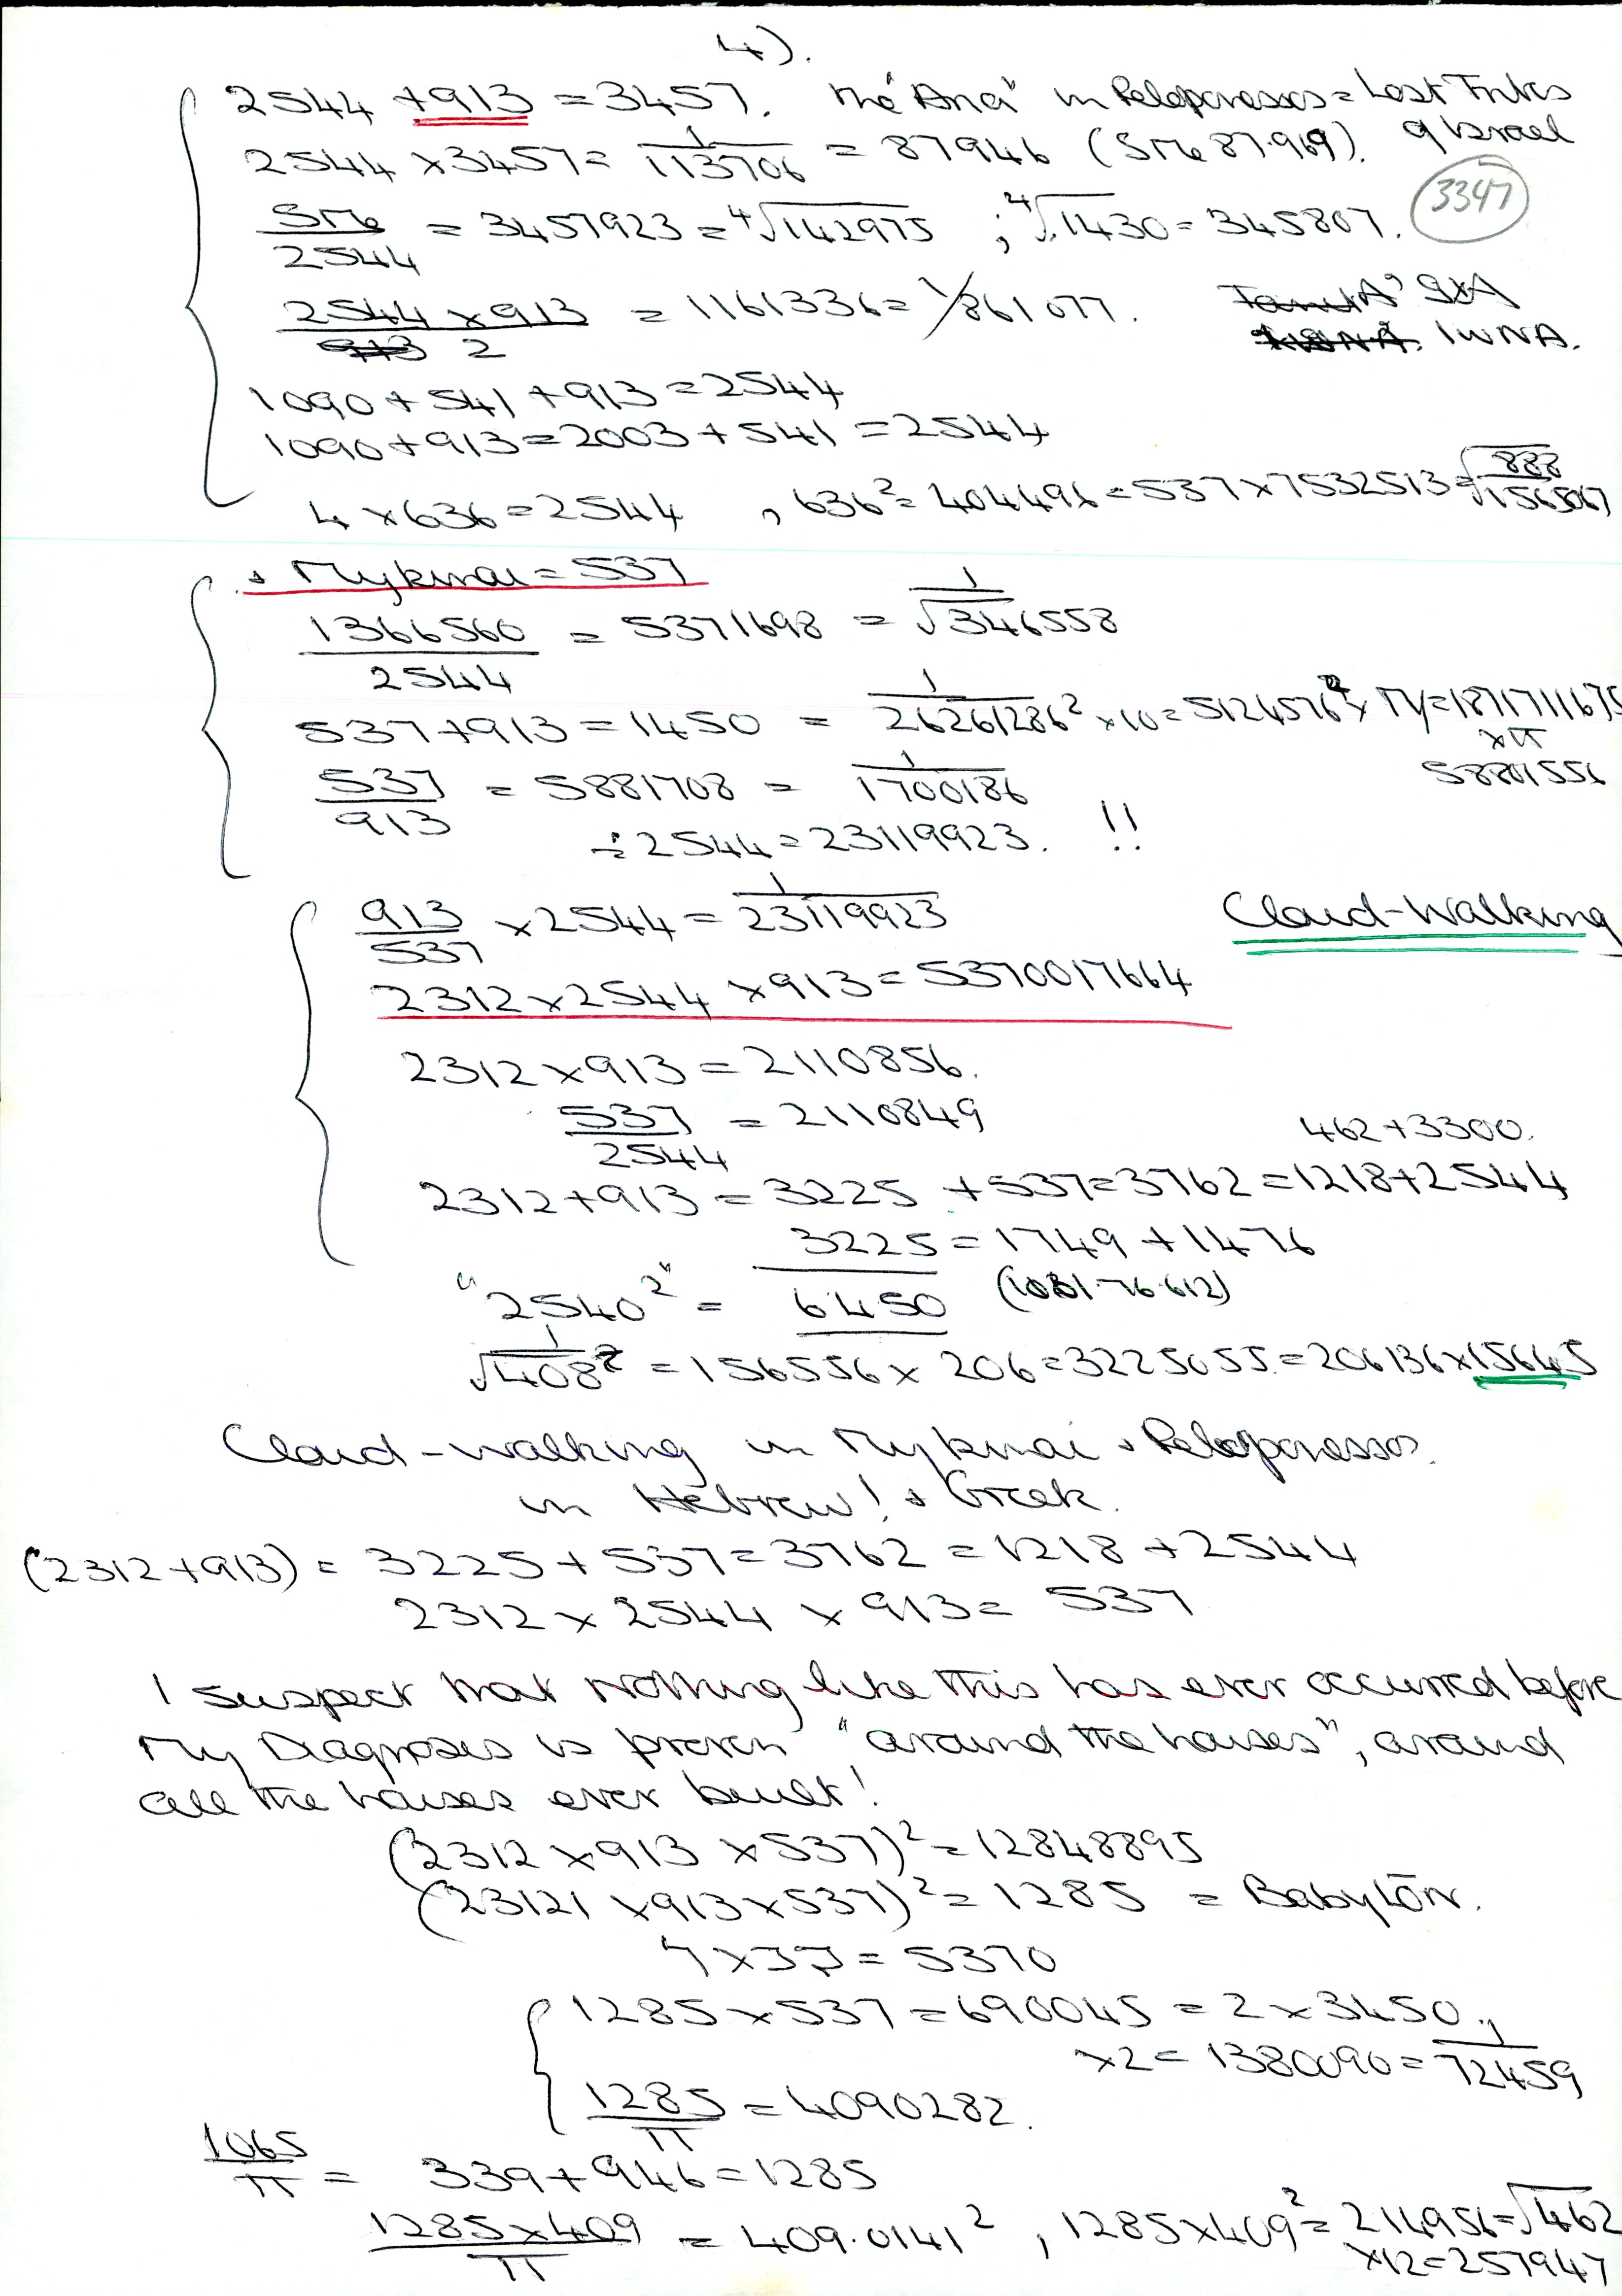 4).
2544 + 913 = 3457. The "Ana" in Peloponessos = Lost Tribes
of Israel
2544 x 3457 = 1/113706 = 87946 (5Me 87.969).
3347
/2544 = 3457923 = ⁴√142975 ; ⁴√.1430 = 345807.
2544 x 913 / 2 = 1161336 = 1/861077.
IWNA.
1090 + 541 + 913 = 2544
1090 + 913 = 2003 + 541 = 2544
4 x 636 = 2544 , 636² = 404496 = 537 x 7532513 = √888/1565067
+ Mykinai = 537
1366560/2544 = 5371698 = 1/√346558
537 + 913 = 1450 = 1/26261286² x 10 = 5124576² x My = 187171167
x π
58801556
537/913 = 5881708 = 1/1700186
÷ 2544 = 23119923. !!
913/537 x 2544 = 1/23119923
Cloud-Walking
2312 x 2544 x 913 = 5370017664
2312 x 913 = 2110856.
537/2544 = 2110849
462 + 3300.
2312 + 913 = 3225 + 537 = 3762 = 1218 + 2544
3225 = 1749 + 1476
"2540²" = 6450 (1061.76.612)
1/√408² = 156556 x 206 = 3225055 = 206136 x 15645
Cloud-walking in Mykinai + Peloponessos.
in Hebrew! + Greek.
(2312 + 913) = 3225 + 537 = 3762 = 1218 + 2544
2312 x 2544 x 913 = 537
I suspect that nothing like this has ever occurred before
My Diagnoses is proven "around the houses", around
all the houses ever built!
(2312 x 913 x 537)² = 12848895
(23121 x 913 x 537)² = 1285 = BabyLōn.
= 5370
1285 x 537 = 690045 = 2 x 3450.,
x2 = 1380090 = 1/72459
1285/π = 4090282.
1065/π = 339 + 946 = 1285
1285 x 409/π = 409.0141² , 1285 x 409² = 214956 = √462
x12 = 257947